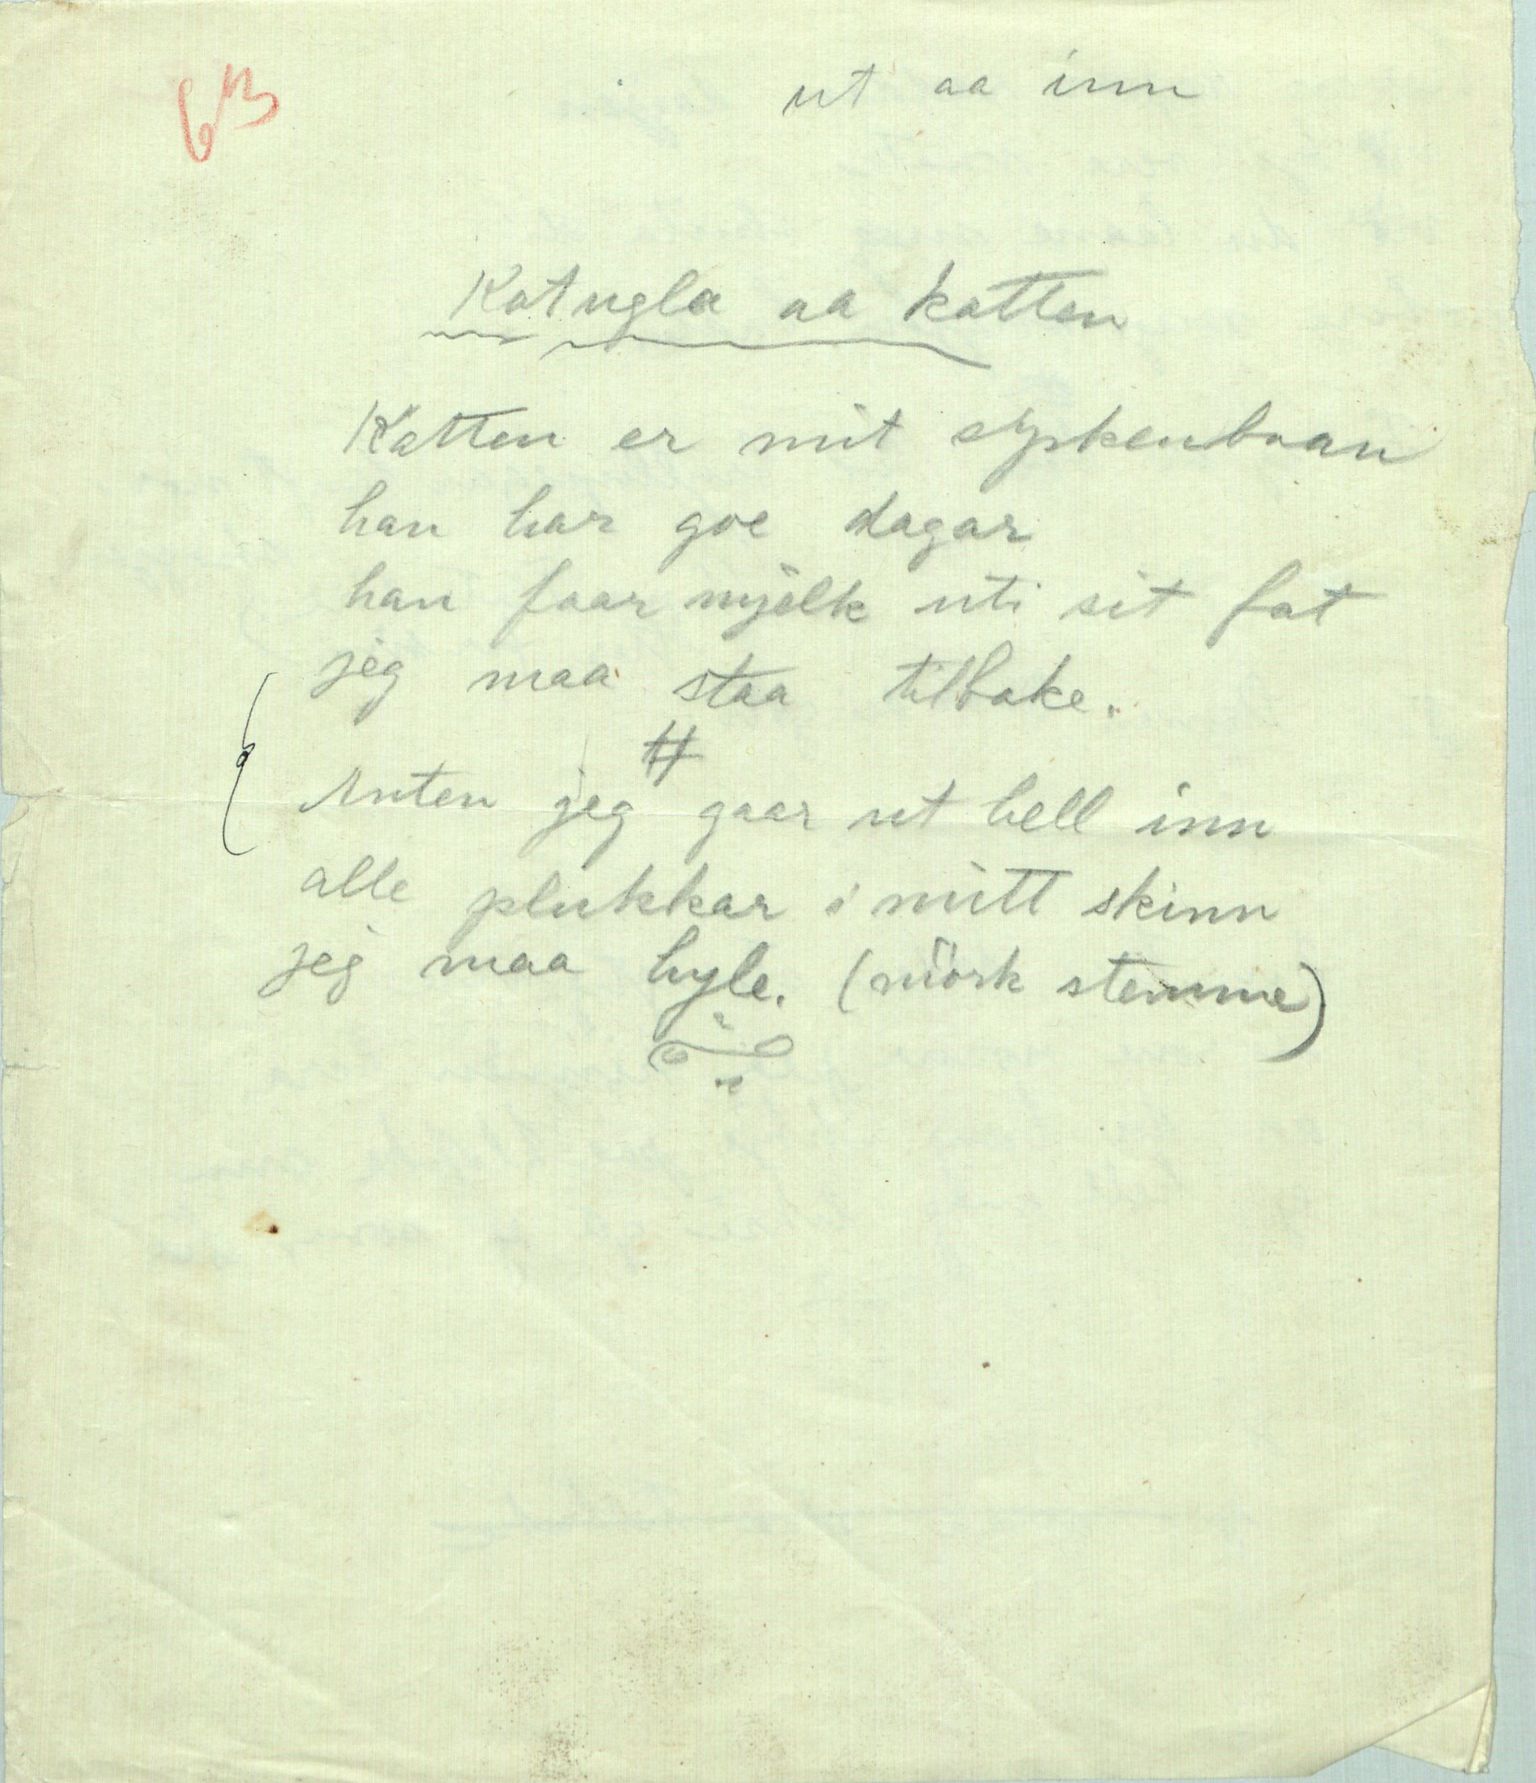 63
ut aa inn
Katugla aa katten
Katten er mit syskenbaan
han har goe dagar
han faar mjelk uti sit fat
jeg maa staa tilbake.
#
Anten jeg gaar ut hell inn
alle plukkar i mitt skinn
jeg maa hyle. (mörk stemme)